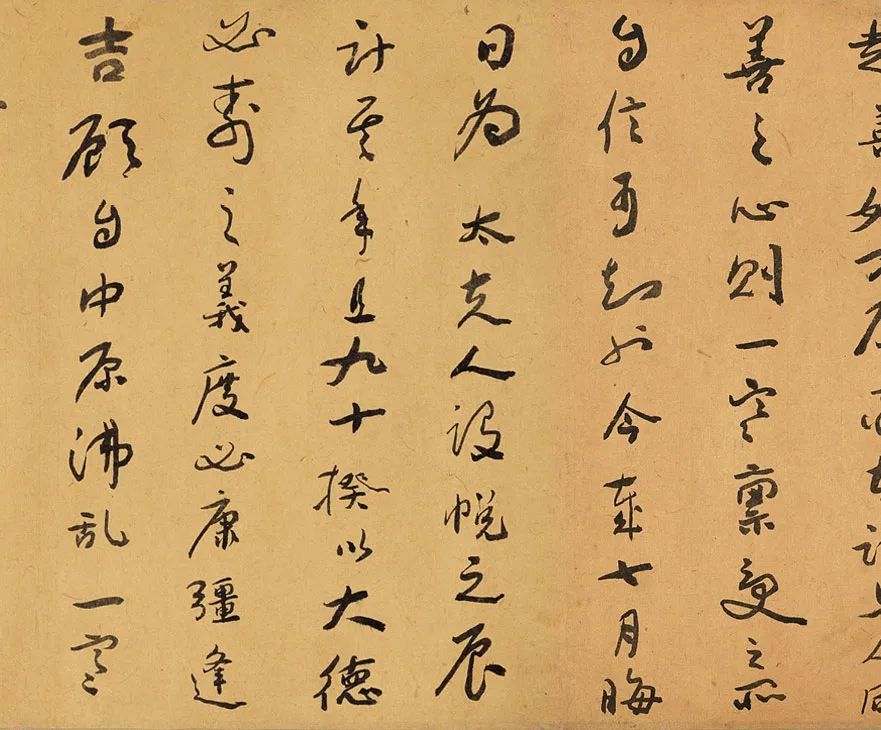 善之心則一家稟受之所
自信可知也今歲七月晦
日為太夫人設帨之辰
計其年且九十揆以大德
必壽之義度必康彊逢
吉顧自中原沸乱一家